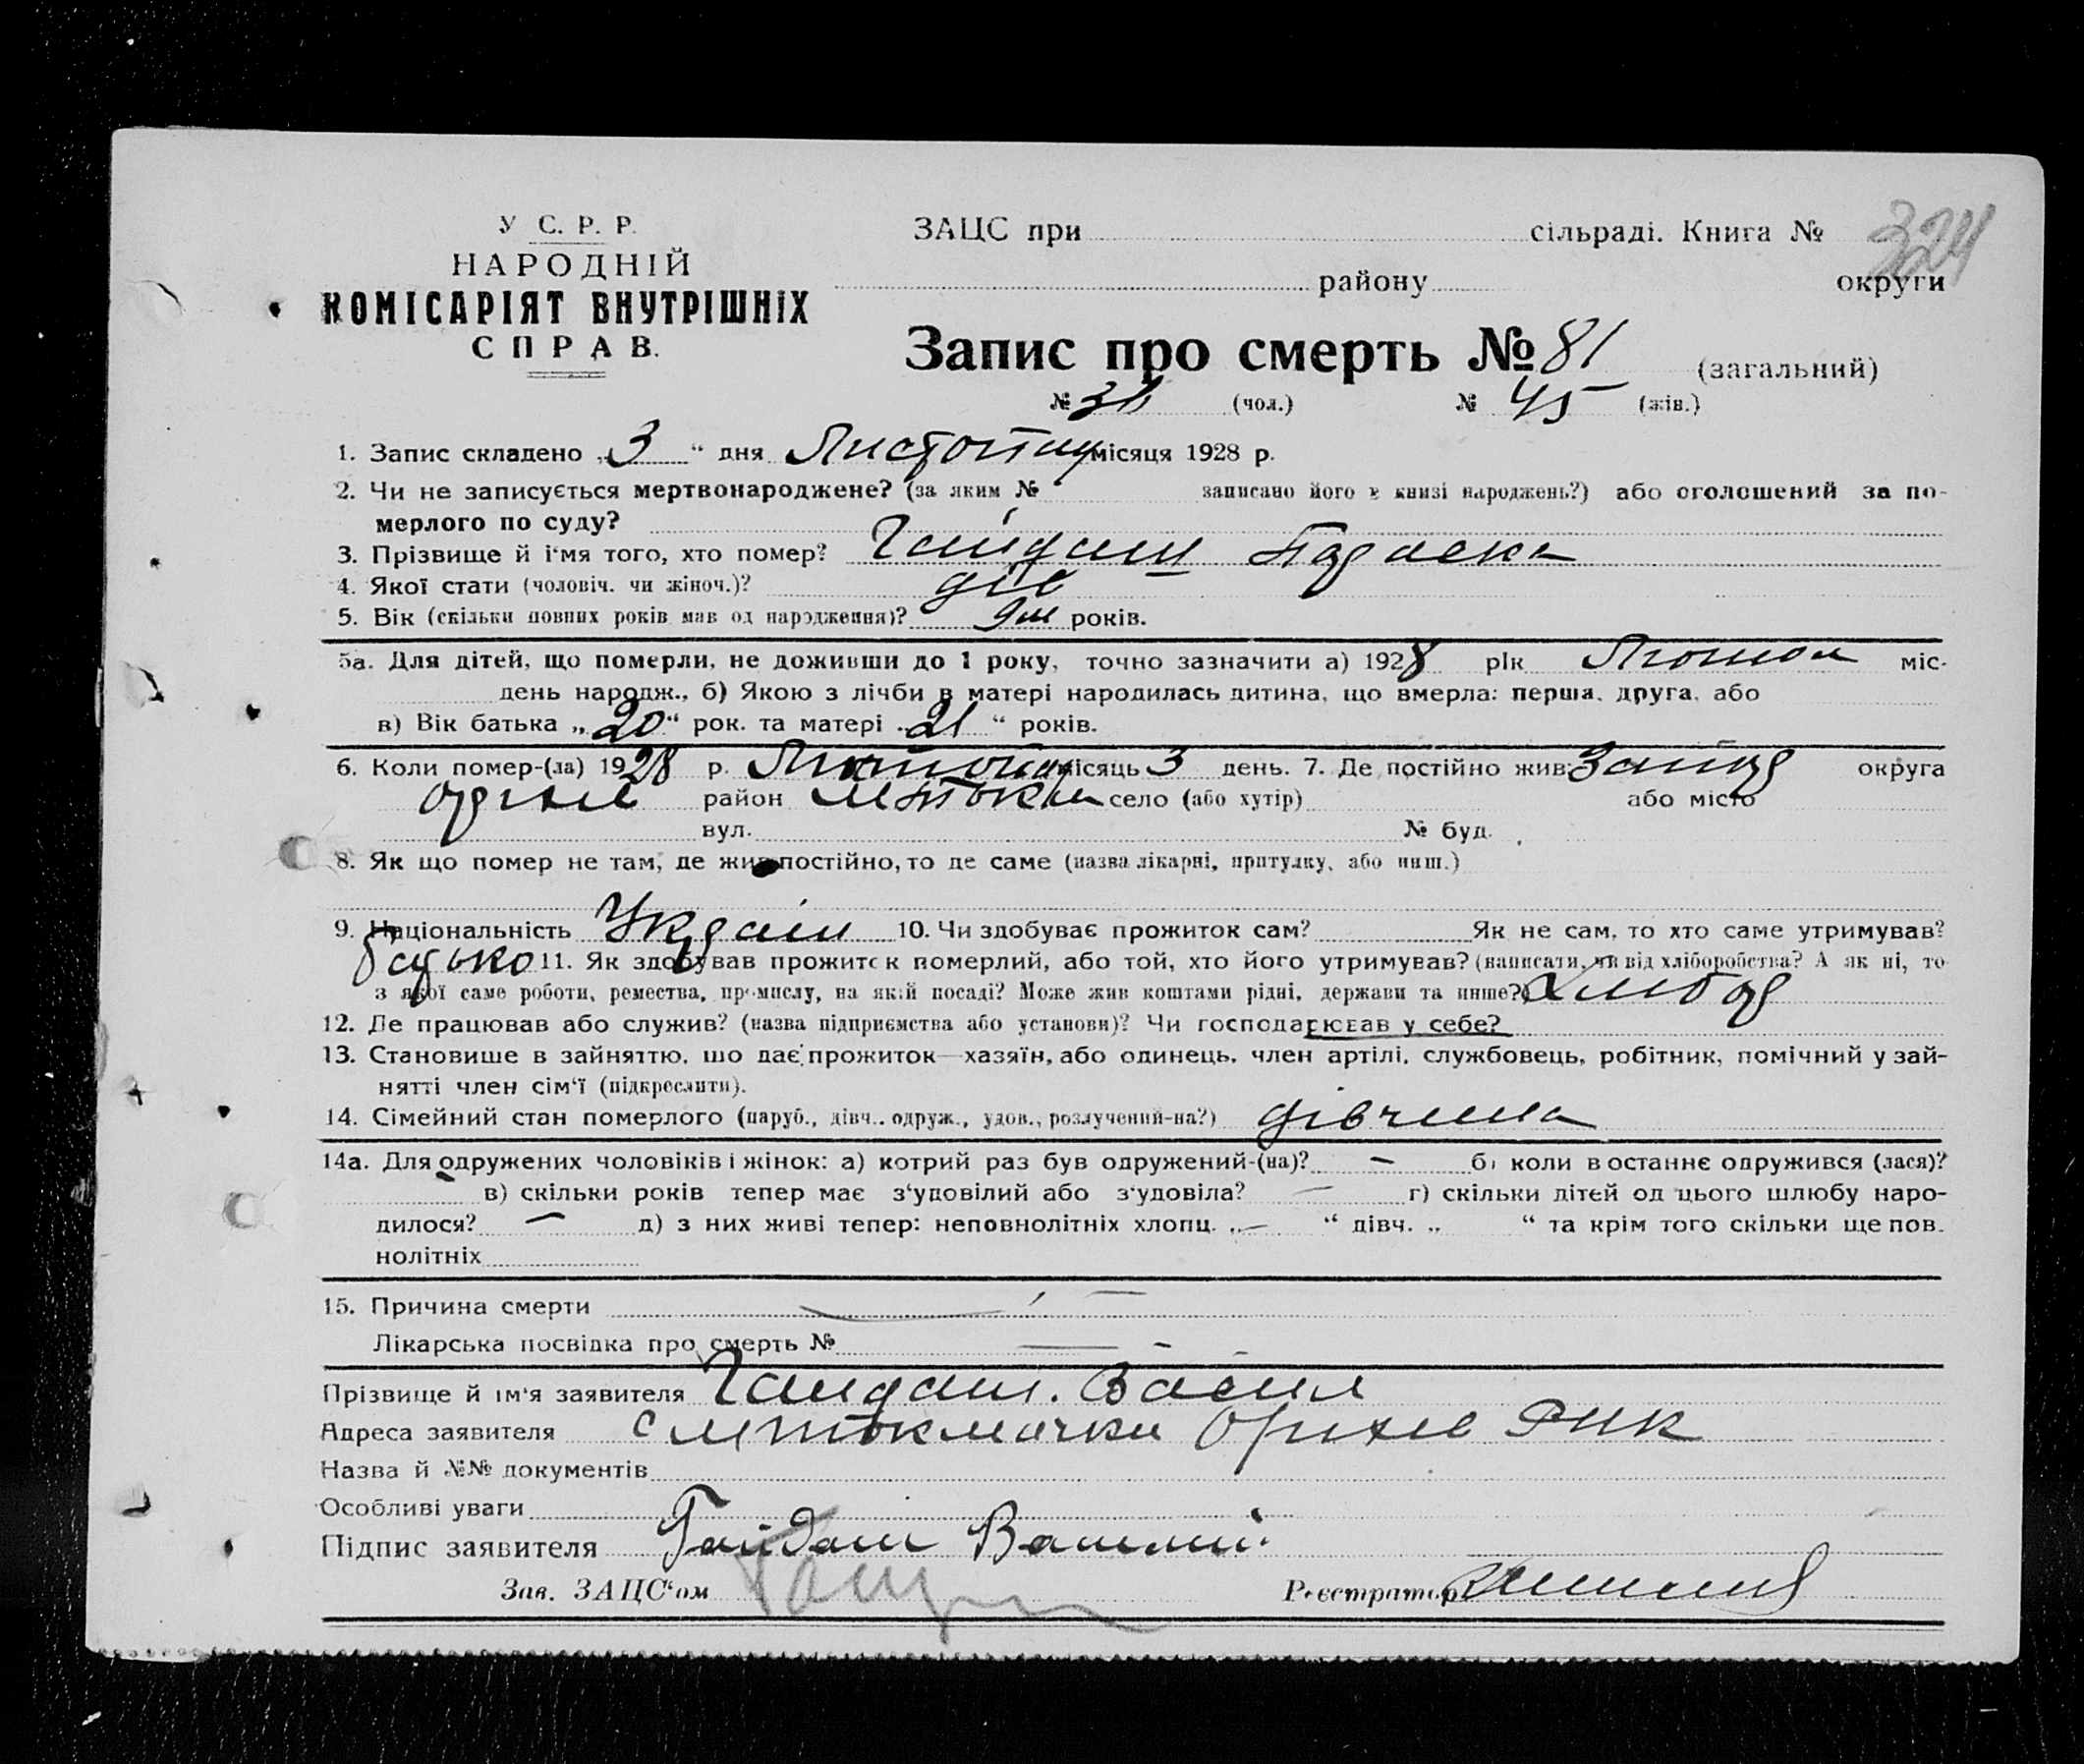 324
У С. Р. Р.
НАРОДНІЙ
КОМІСАРІЯТ ВНУТРІШНІХ
СПРАВ.
ЗАЦС при сільраді. Книга №
району округи
Запис про смерть № 81 (загальний)
№ (чол.) № 45 (жів.)
1. Запис складено „3“ дня Листопад місяця 1928 р.
2. Чи не записується мертвонароджене? (за яким № записано його в книзі народжень?) або оголошений за по-
мерлого по суду?
3. Прізвище й і'мя того, хто помер? Гайдаш Параска
4. Якої стати (чоловіч. чи жіноч.)? дів
5. Вік (скільки повних років мав од народження)? 9 м років.
5а. Для дітей, що померли, не доживши до 1 року, точно зазначити а) 1928 рік міс-
день народж., б) Якою з лічби в матері народилась дитина, що вмерла: перша, друга, або
в) Вік батька „20“ рок. та матері „21“ років.
6. Коли помер-(ла) 1928 р. Листопад місяць 3 день. 7. Де постійно жив Запор округа
Оріхів район МТокм село (або хутір) або місто
вул. № буд.
8. Як що помер не там, де жив постійно, то де саме (назва лікарні, притулку, або инш.)
9. Національність Україн 10. Чи здобуває прожиток сам? Як не сам, то хто саме утримував?
батько 11. Як здобував прожиток померлий, або той, хто його утримував? (написати, чи від хліборобства? А як ні, то
з якої саме роботи, ремества, промислу, на якій посаді? Може жив коштами рідні, держави та инше?) Хлібор
12. Де працював або служив? (назва підприємства або установи)? Чи господарював у себе?
13. Становище в зайняттю, що дає прожиток—хазяїн, або одинець, член артілі, службовець, робітник, помічний у зай-
нятті член сім'ї (підкреслити).
14. Сімейний стан померлого (паруб., дівч., одруж., удов., розлучений-на?) дівчина
14а. Для одружених чоловіків і жінок: а) котрий раз був одружений-(на)? — б) коли в останнє одружився (лася)?
в) скільки років тепер має з'удовілий або з'удовіла? — г) скільки дітей од цього шлюбу наро-
дилося? — д) з них живі тепер: неповнолітніх хлопц. „— “ дівч. „ “ та крім того скільки ще пов-
нолітніх
15. Причина смерти —
Лікарська посвідка про смерть № —
Прізвище й ім'я заявителя Гайдаш. Васил
Адреса заявителя с МТокмачки Оріхів Рик
Назва й №№ документів
Особливі уваги
Підпис заявителя Гайдаш Василий
Зав. ЗАЦС'ом Реєстратор